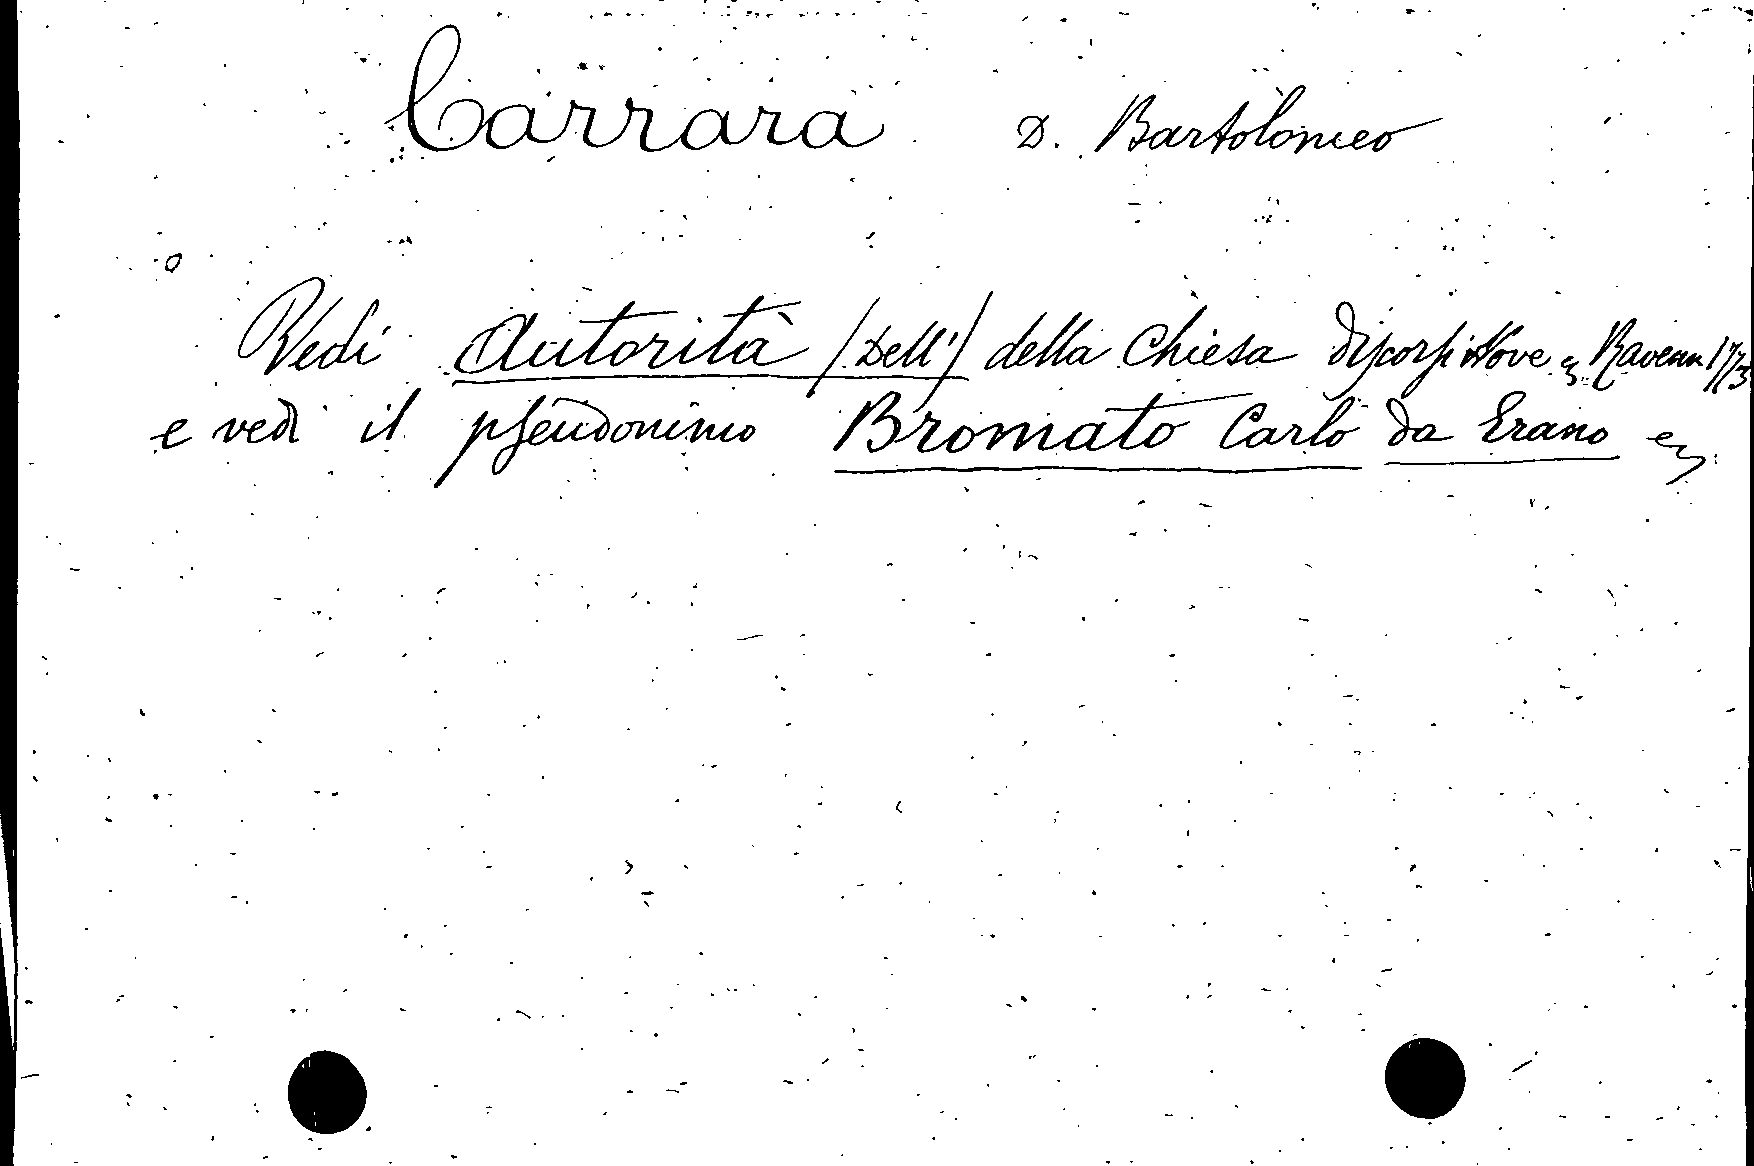 Carrara D. Bartolomeo
Vedi Autorità (Dell') della Chiesa discorsi Nove Ravenn 1773
e vedi il pseudonimo Bromato Carlo da Erano